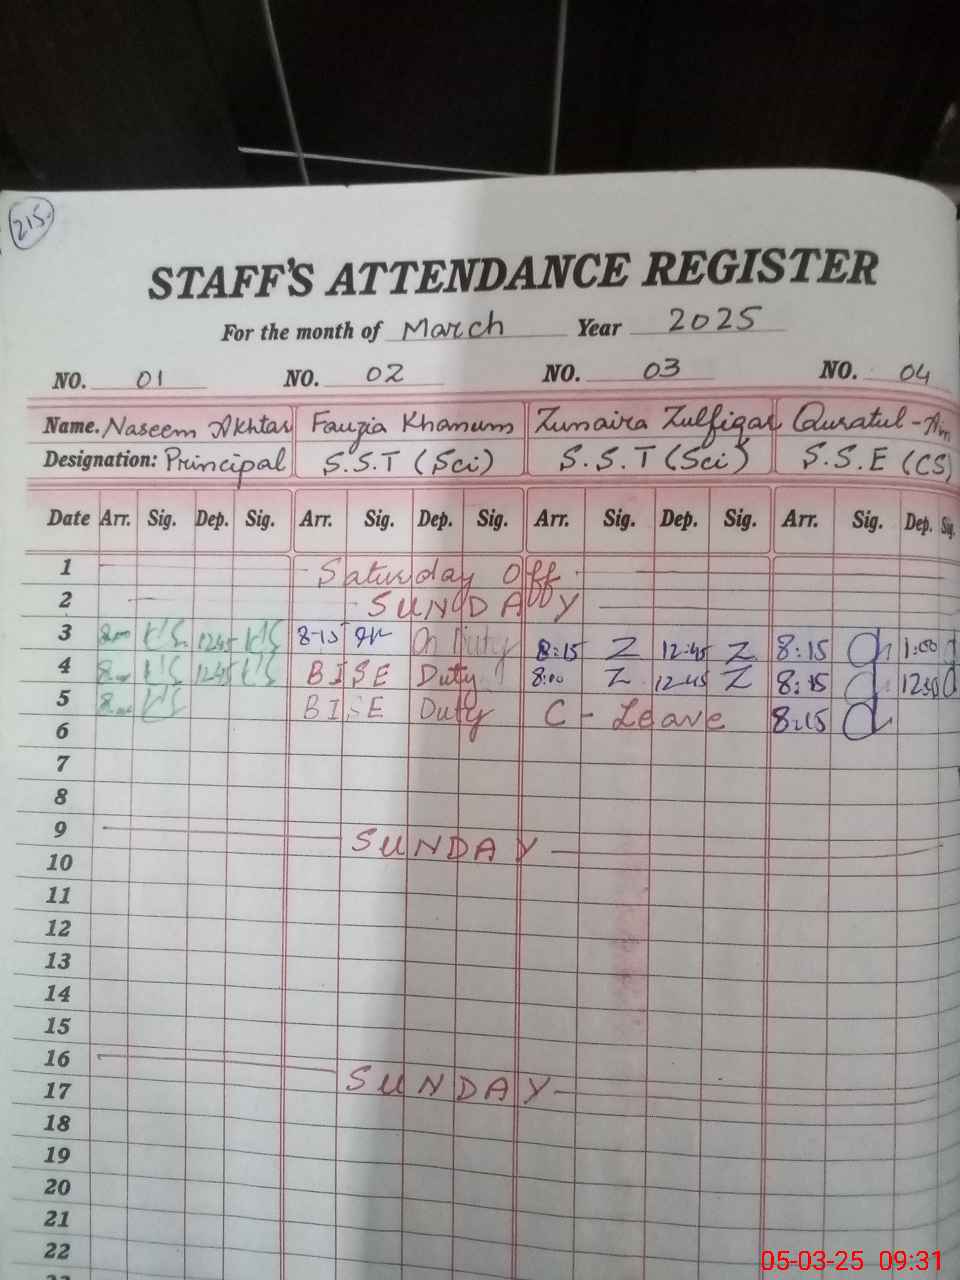 215
STAFF'S ATTENDANCE REGISTER
For the month of March Year 2025
NO. 01 NO. 02 NO. 03 NO. 04
Name. Naseem Akhtar Fauzia Khanum Zunaira Zulfiqar Quratul-Ain
Designation: Principal S.S.T (Sci) S.S.T (Sci) S.S.E (CS)
Date Arr. Sig. Dep. Sig. Arr. Sig. Dep. Sig. Arr. Sig. Dep. Sig. Arr. Sig. Dep. Sig.
1 Saturday Off
2 SUNDAY
3 8:00 12:45 8:15 On Duty 8:15 Z 12:45 Z 8:15 1:00
4 8:00 12:45 BISE Duty 8:00 Z 12:45 Z 8:15 12:30
5 8:00 BISE Duty C-Leave 8:15
6
7
8
9 SUNDAY
10
11
12
13
14
15
16 SUNDAY
17
18
19
20
21
22
05-03-25 09:31